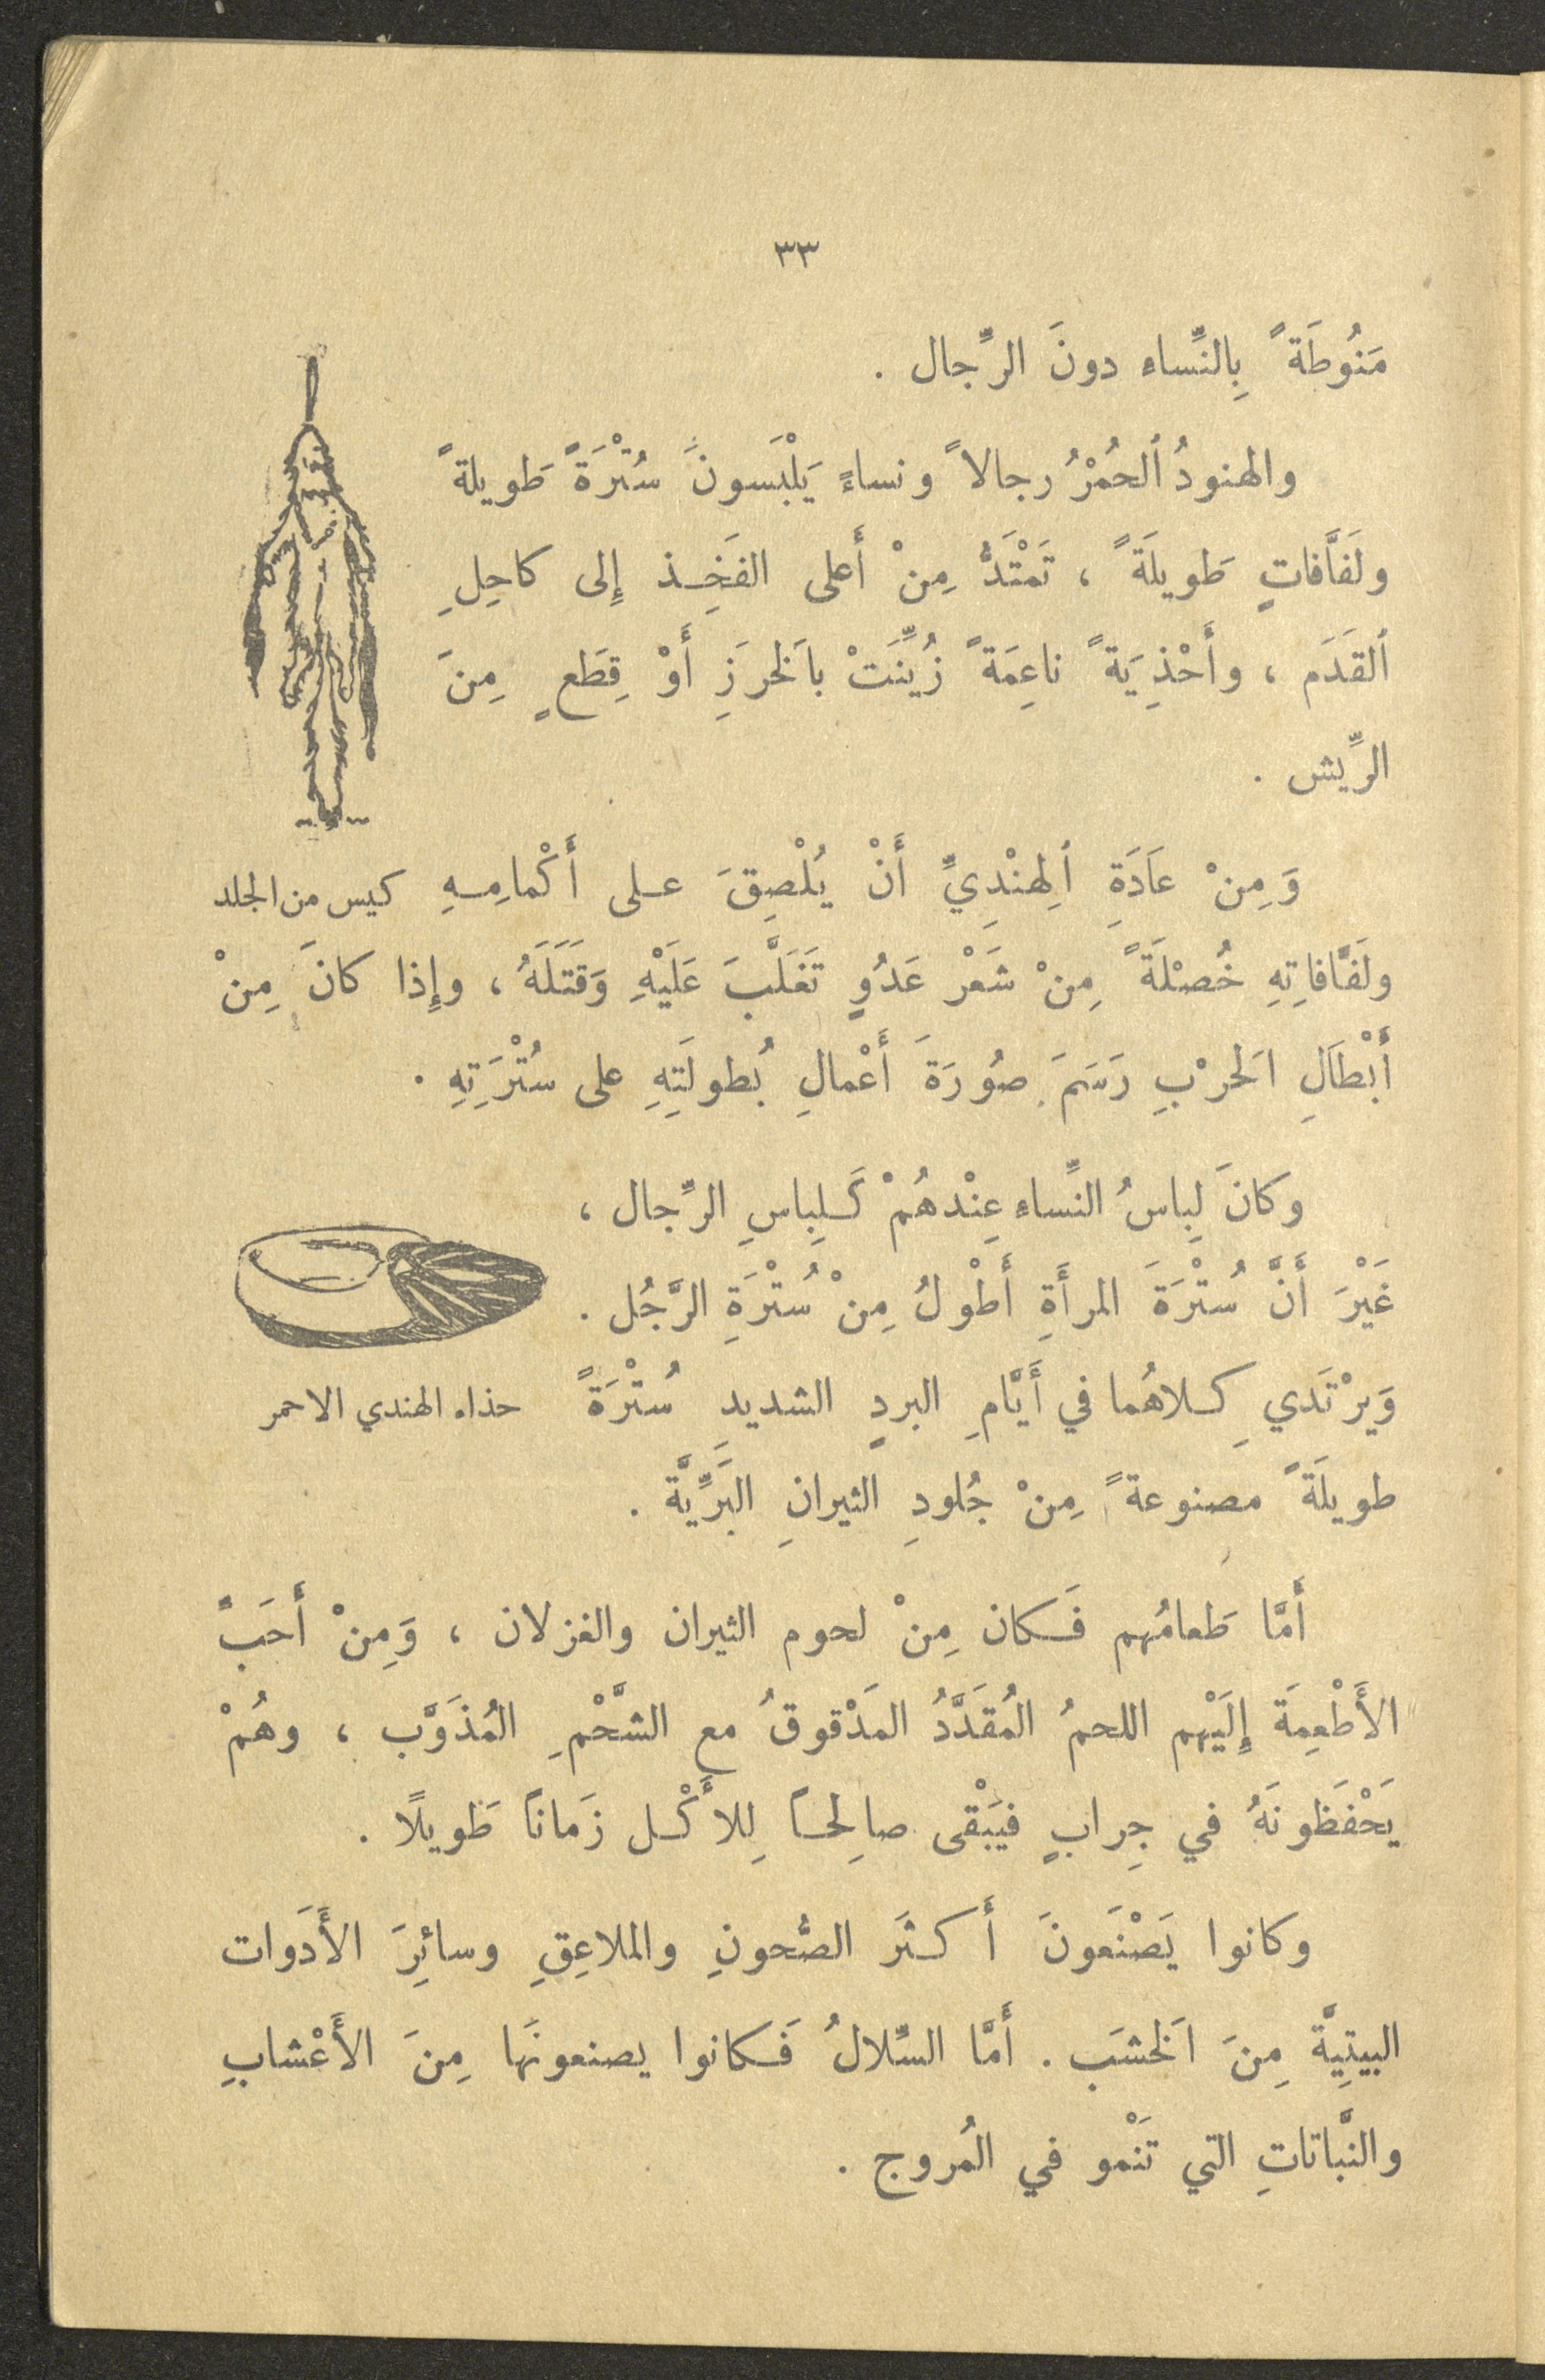 ٣٣
مَنُوطَةً بِالنِّساءِ دونَ الرِّجال .
والهنودُ ٱلحُمْرُ رجالاً ونساءً يَلْبَسونَ سُتْرَةً طَويلةً
ولَفَّافاتٍ طَويلَةً ، تَمْتَدُّ مِنْ أَعلى الفَخِذ إِلى كاحِلِ
ٱلقَدَم ، وأَحْذِيَةً ناعِمَةً زُيِّنَتْ باَلخرَزِ أَوْ قِطَعٍ مِنَ
الرِّيش .
وَمِنْ عاَدَةِ ٱلهِنْدِيِّ أَنْ يُلْصِقَ على أَكْمامِهِ
كيس من الجلد
ولَفَّافاتِهِ خُصْلَةً مِنْ شَعْر عَدُوٍ تَغَلَّبَ عَلَيْهِ وَقَتَلَهُ ، وإِذا كانَ مِنْ
أَبْطَالِ اَلحرْبِ رَسَمَ صُورَةَ أَعْمالِ بُطولَتِهِ على سُتْرَتِهِ .
وكانَ لِباسُ النِّساءِ عِنْدهُمْ كَلِباسِ الرِّجال ،
غَيْرَ أَنَّ سُتْرَةَ المرأَةِ أَطْولُ مِنْ سُتْرَةِ الرَّجُل .
وَيرْتَدي كِلاهُما في أَيَّامِ البردِ الشديدِ سُتْرَةً
حذاء الهندي الاحمر
طويلَةً مصنوعةً مِنْ جُلودِ الثيرانِ البَرِّيَّة .
أَمَّا طَعامُهم فَكان مِنْ لحوم الثيران والغزلان ، وَمِنْ أَحَبِّ
الأَطْعِمَة إِلَيْهم اللحمُ المُقَدَّدُ المَدْقوقُ مع الشَّحْمِ المُذَوَّب ، وهُمْ
يَحْفَظونَهُ في جِرابٍ فيَبْقى صالِحاً لِلأَكْل زَماناً طَويلًا .
وكانوا يَصْنَعونَ أَكثَر الصُّحونِ والملاعِقِ وسائِرَ الأَدَوات
البيتِيَّة مِنَ اَلخشَب . أَمَّا السِّلالُ فَكانوا يصنعونَها مِنَ الأَعْشابِ
والنَّباتاتِ التي تَنْمو في المُروج .